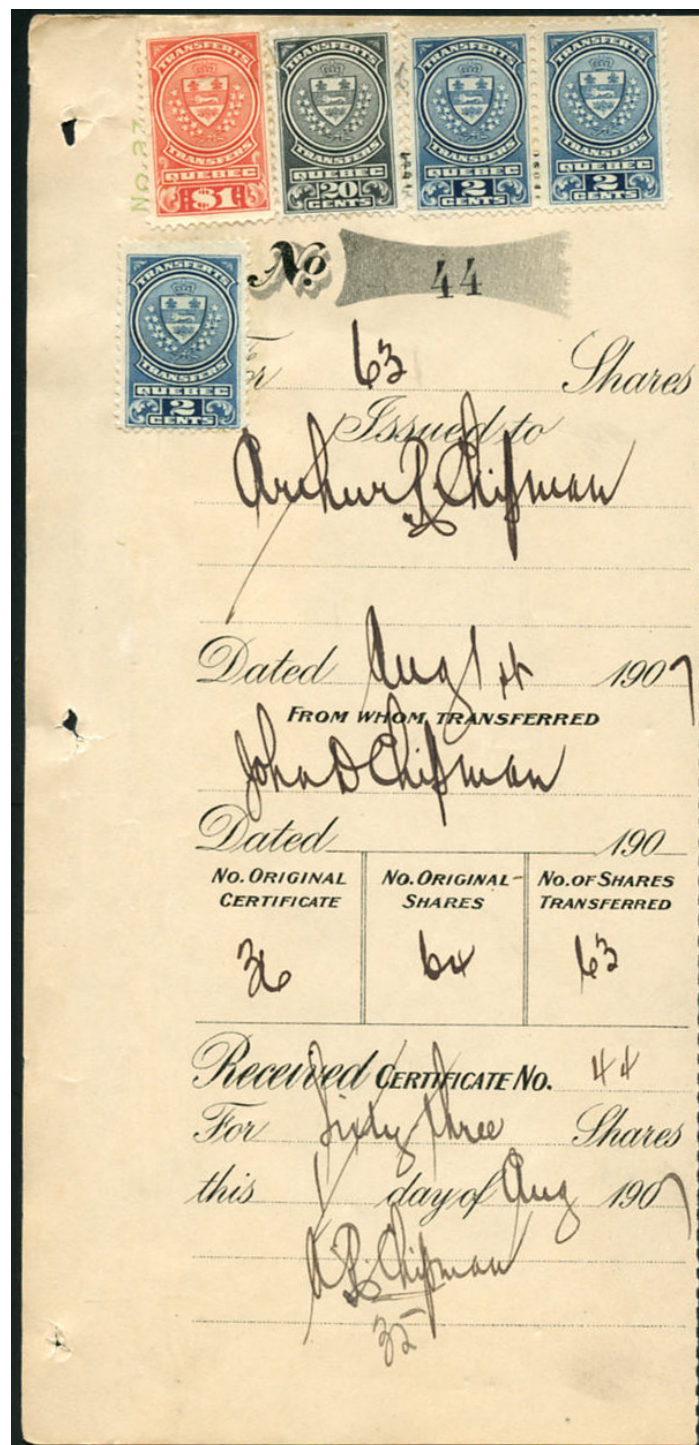 TRANSFERTS TRANSFERTS TRANSFERTS TRANSFERTS
TRANSFERS TRANSFERS TRANSFERS TRANSFERS
QUEBEC QUEBEC QUEBEC QUEBEC
$1 20 CENTS 2 CENTS 2 CENTS
TRANSFERTS
TRANSFERS
QUEBEC
2
CENTS
No 44
For 63 Shares
Issued to
Arthur R Chipman
Dated Aug 1st 1907
FROM WHOM TRANSFERRED
John D Chipman
Dated 190
NO. ORIGINAL CERTIFICATE
NO. ORIGINAL SHARES
NO. OF SHARES TRANSFERRED
36 64 63
Received CERTIFICATE NO. 44
For Sixty three Shares
this 1 day of Aug 1907
A R Chipman
35